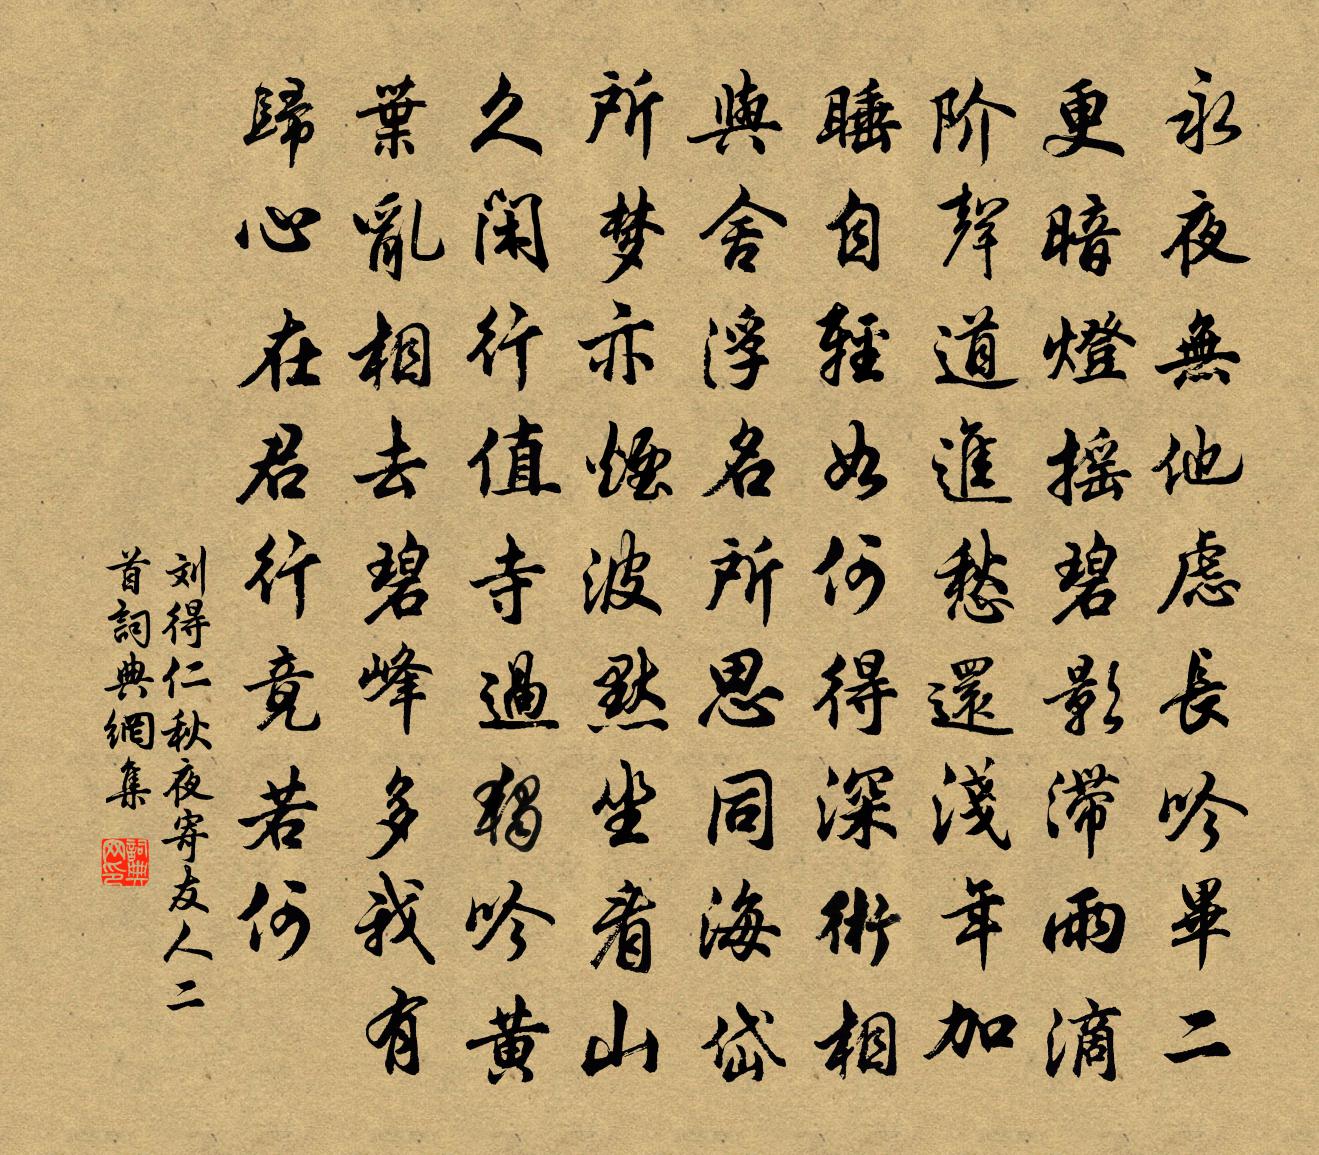 永夜無他慮長吟畢二
更暗燈摇碧影滞雨滴
阶聲道進愁還淺年加
睡自輕如何得深術相
與舍浮名所思同海岱
所梦亦煙波默坐看山
久闲行值寺過獨吟黄
葉亂相去碧峰多我有
歸心在君行竟若何
刘得仁秋夜寄友人二
首詞典網集
詞典网印